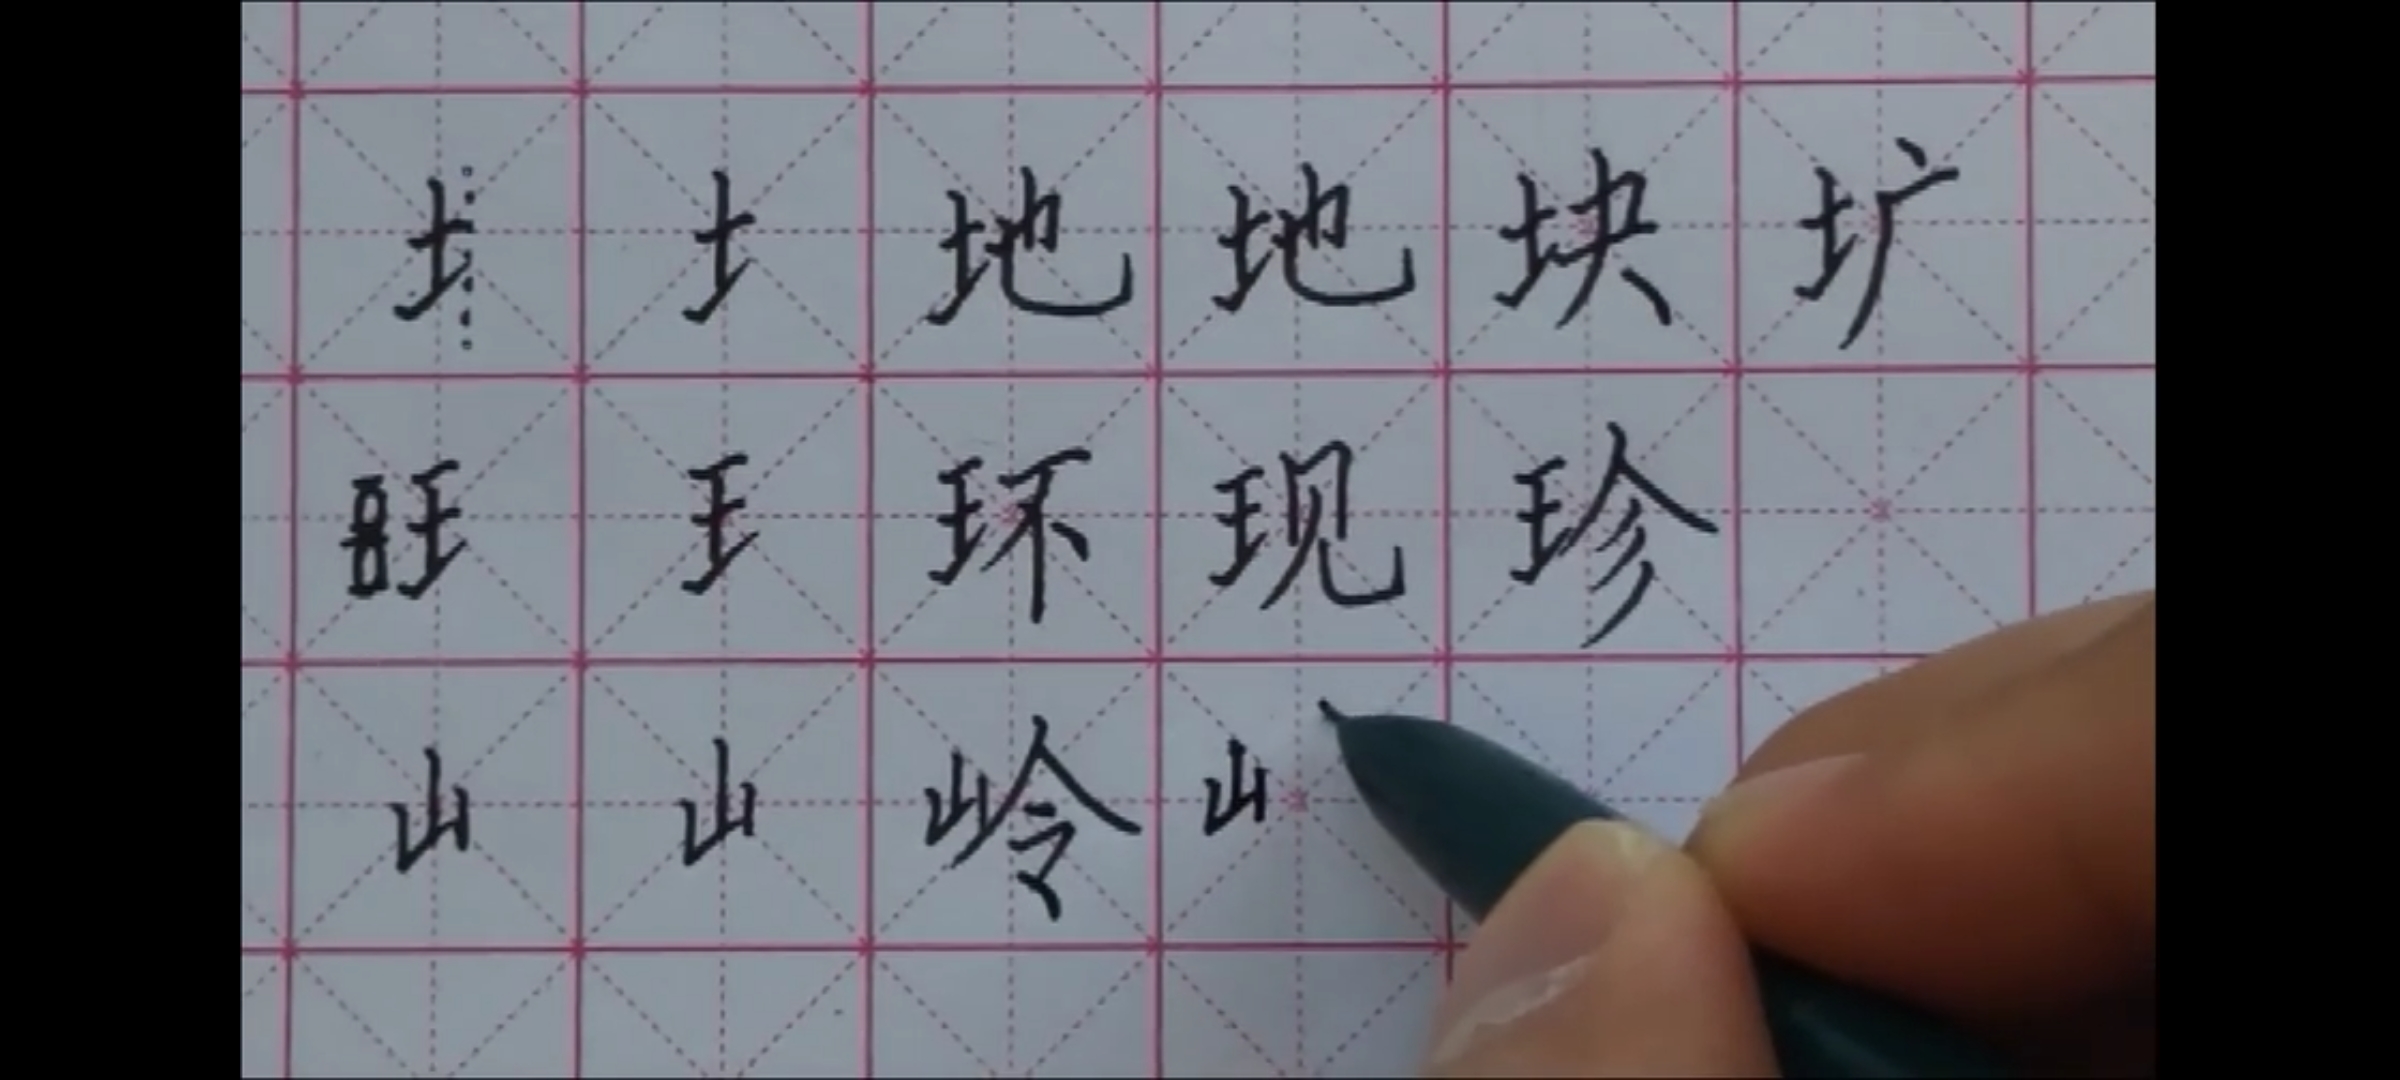 土 土 地 地 块 圹
王 王 环 现 珍
山 山 岭 山